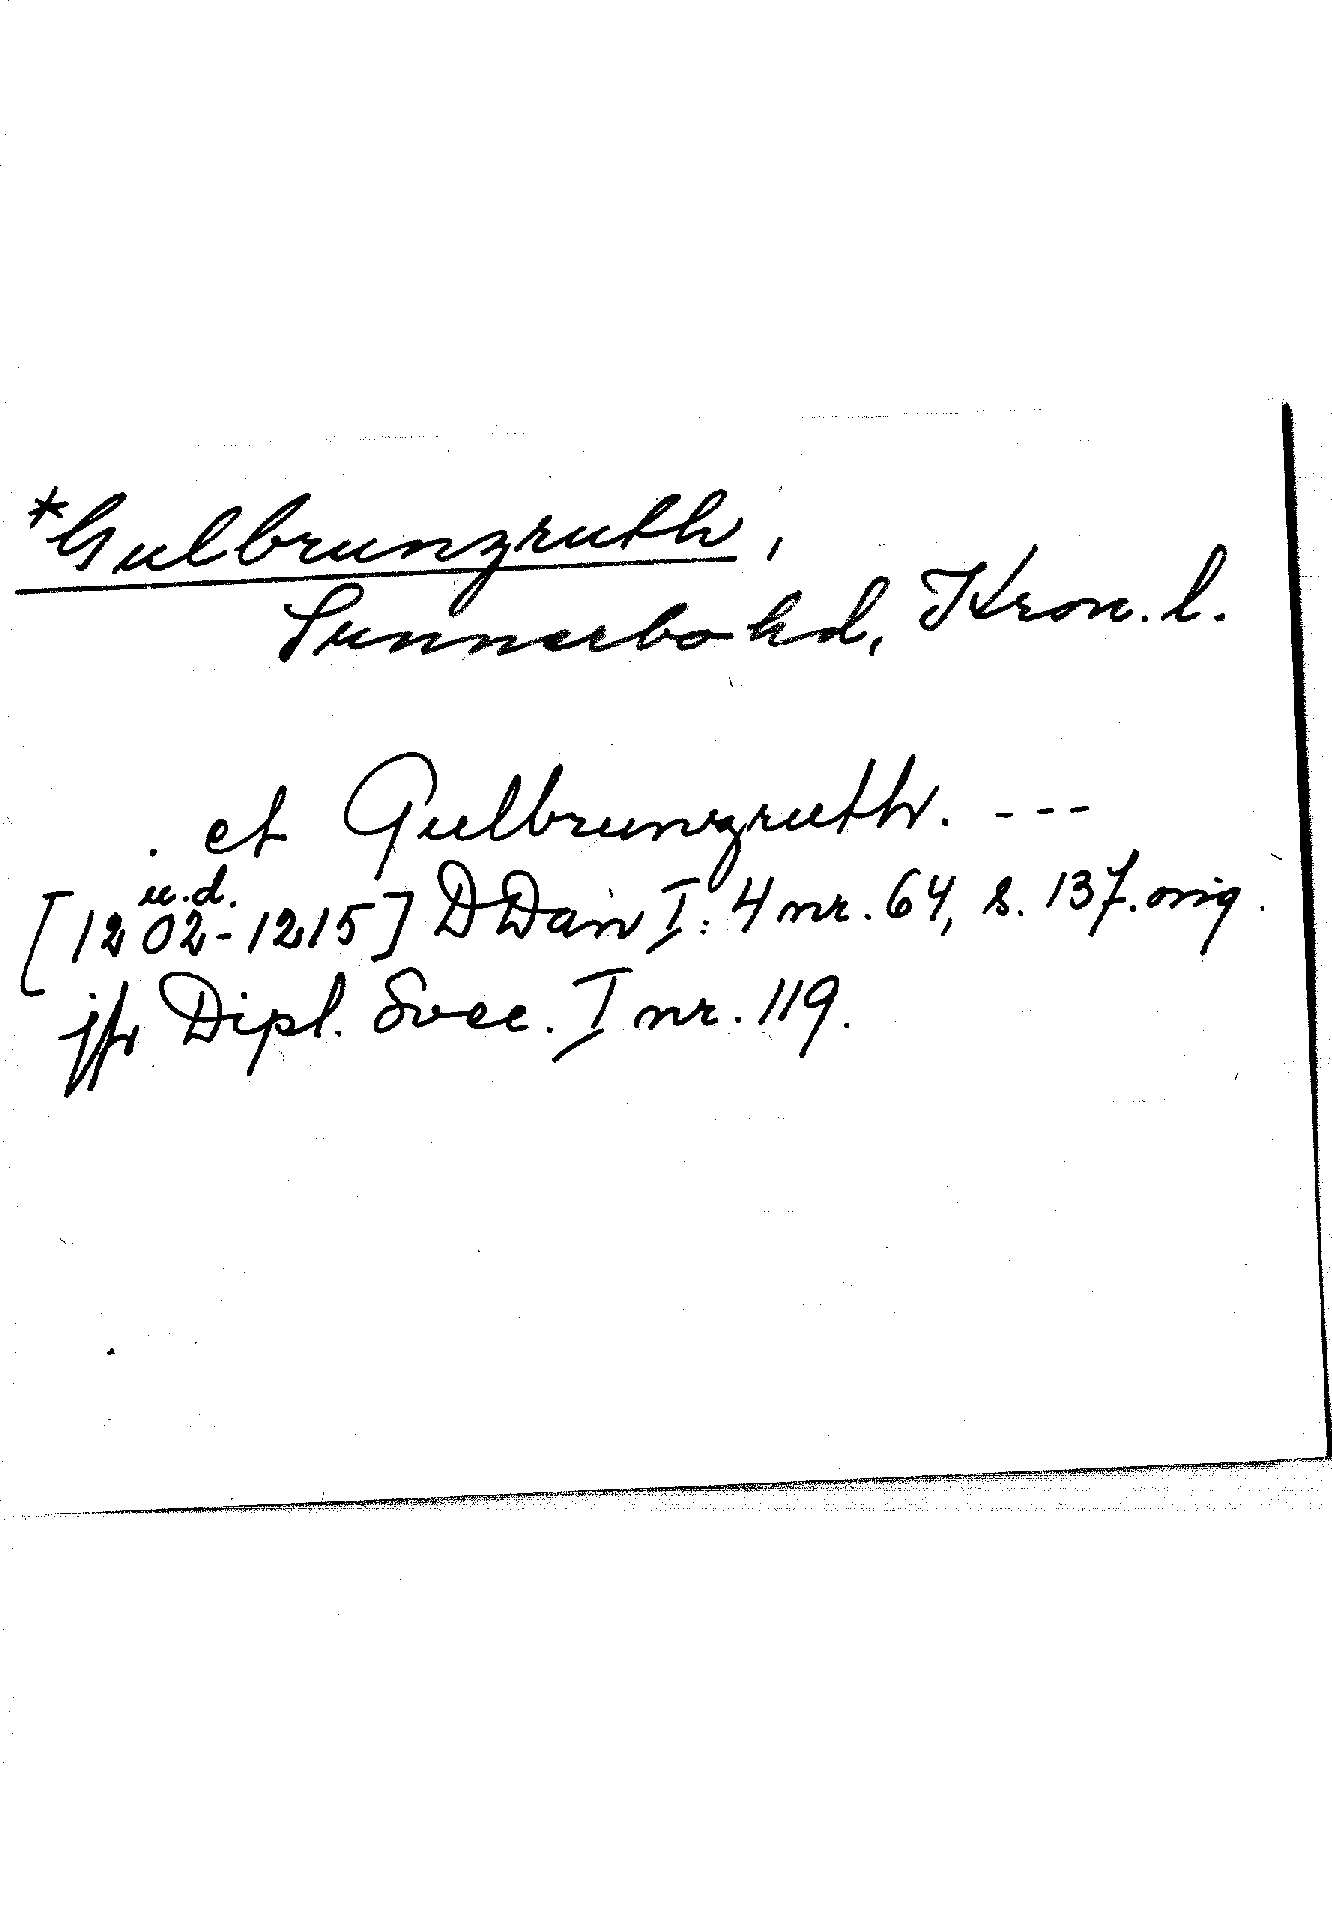 *Gulbrunzruth,
Sunnerbo hd, Kron. l.
. et Gulbrunzruth. ---
u.d.
[1202-1215] DDan I:4 nr. 64, s. 137. orig.
jfr Dipl. Svec. I nr. 119.